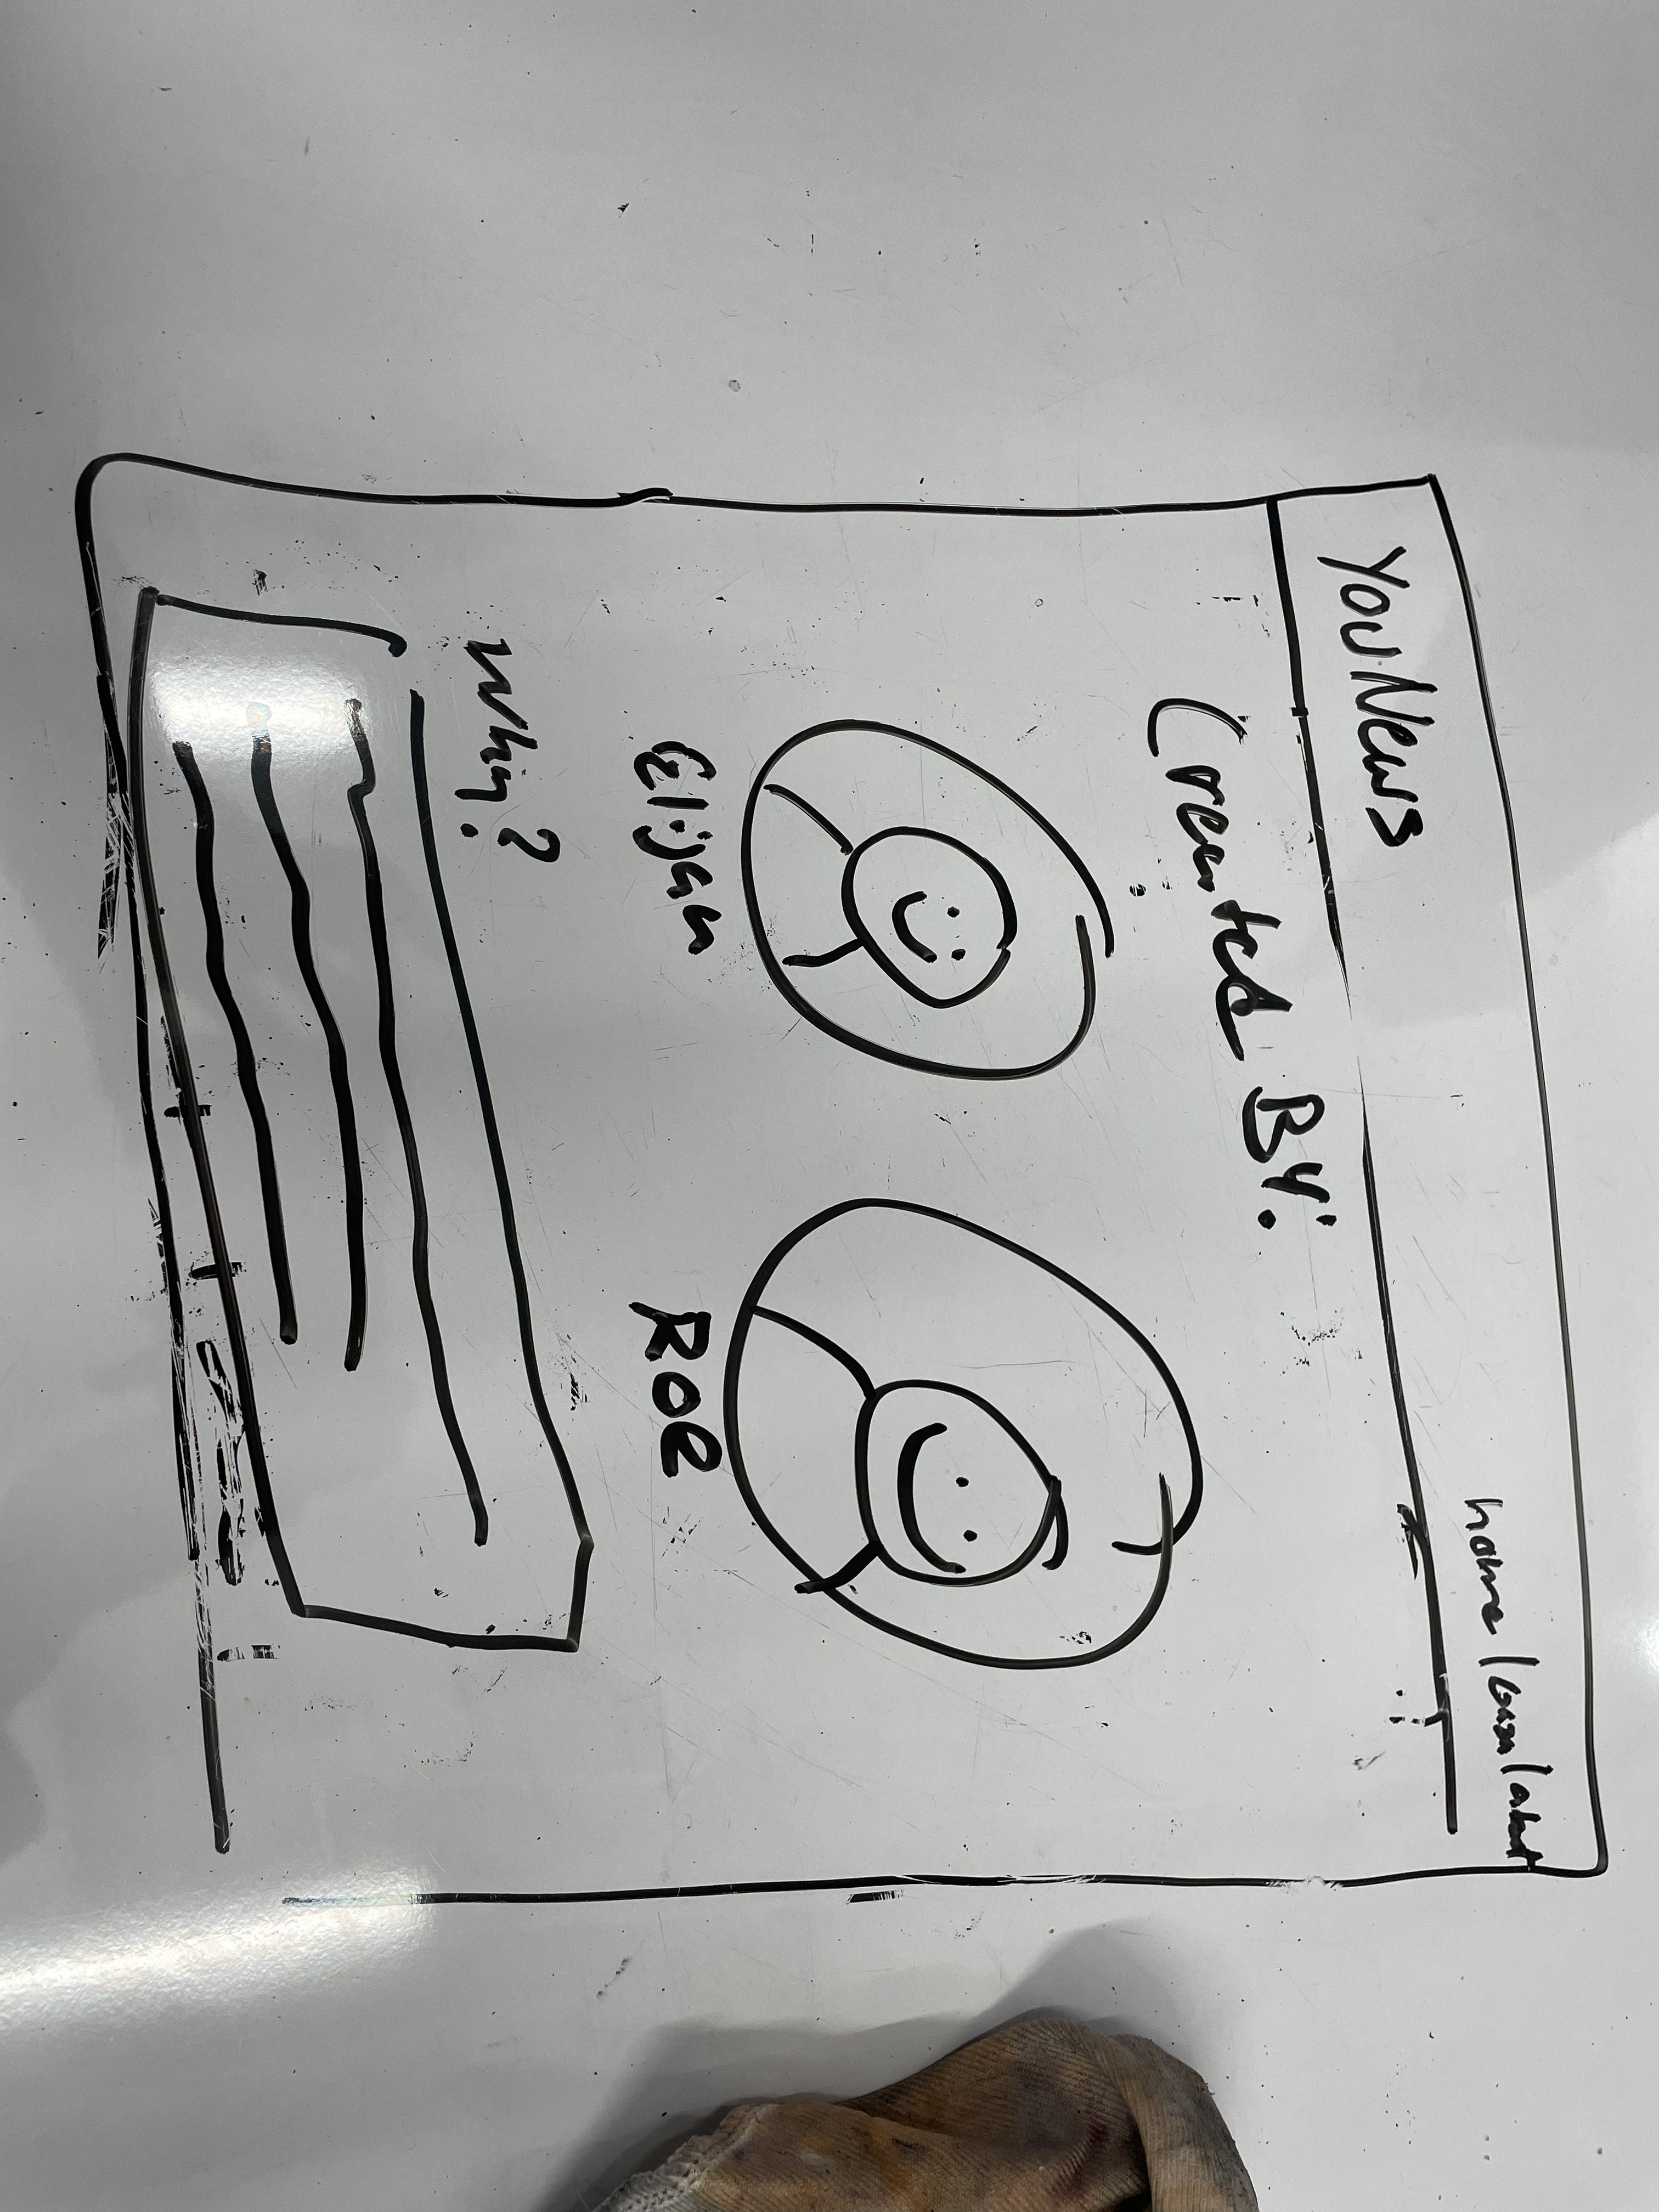 YouNews
home / / about
Created By:
Elijah
Roe
Why?